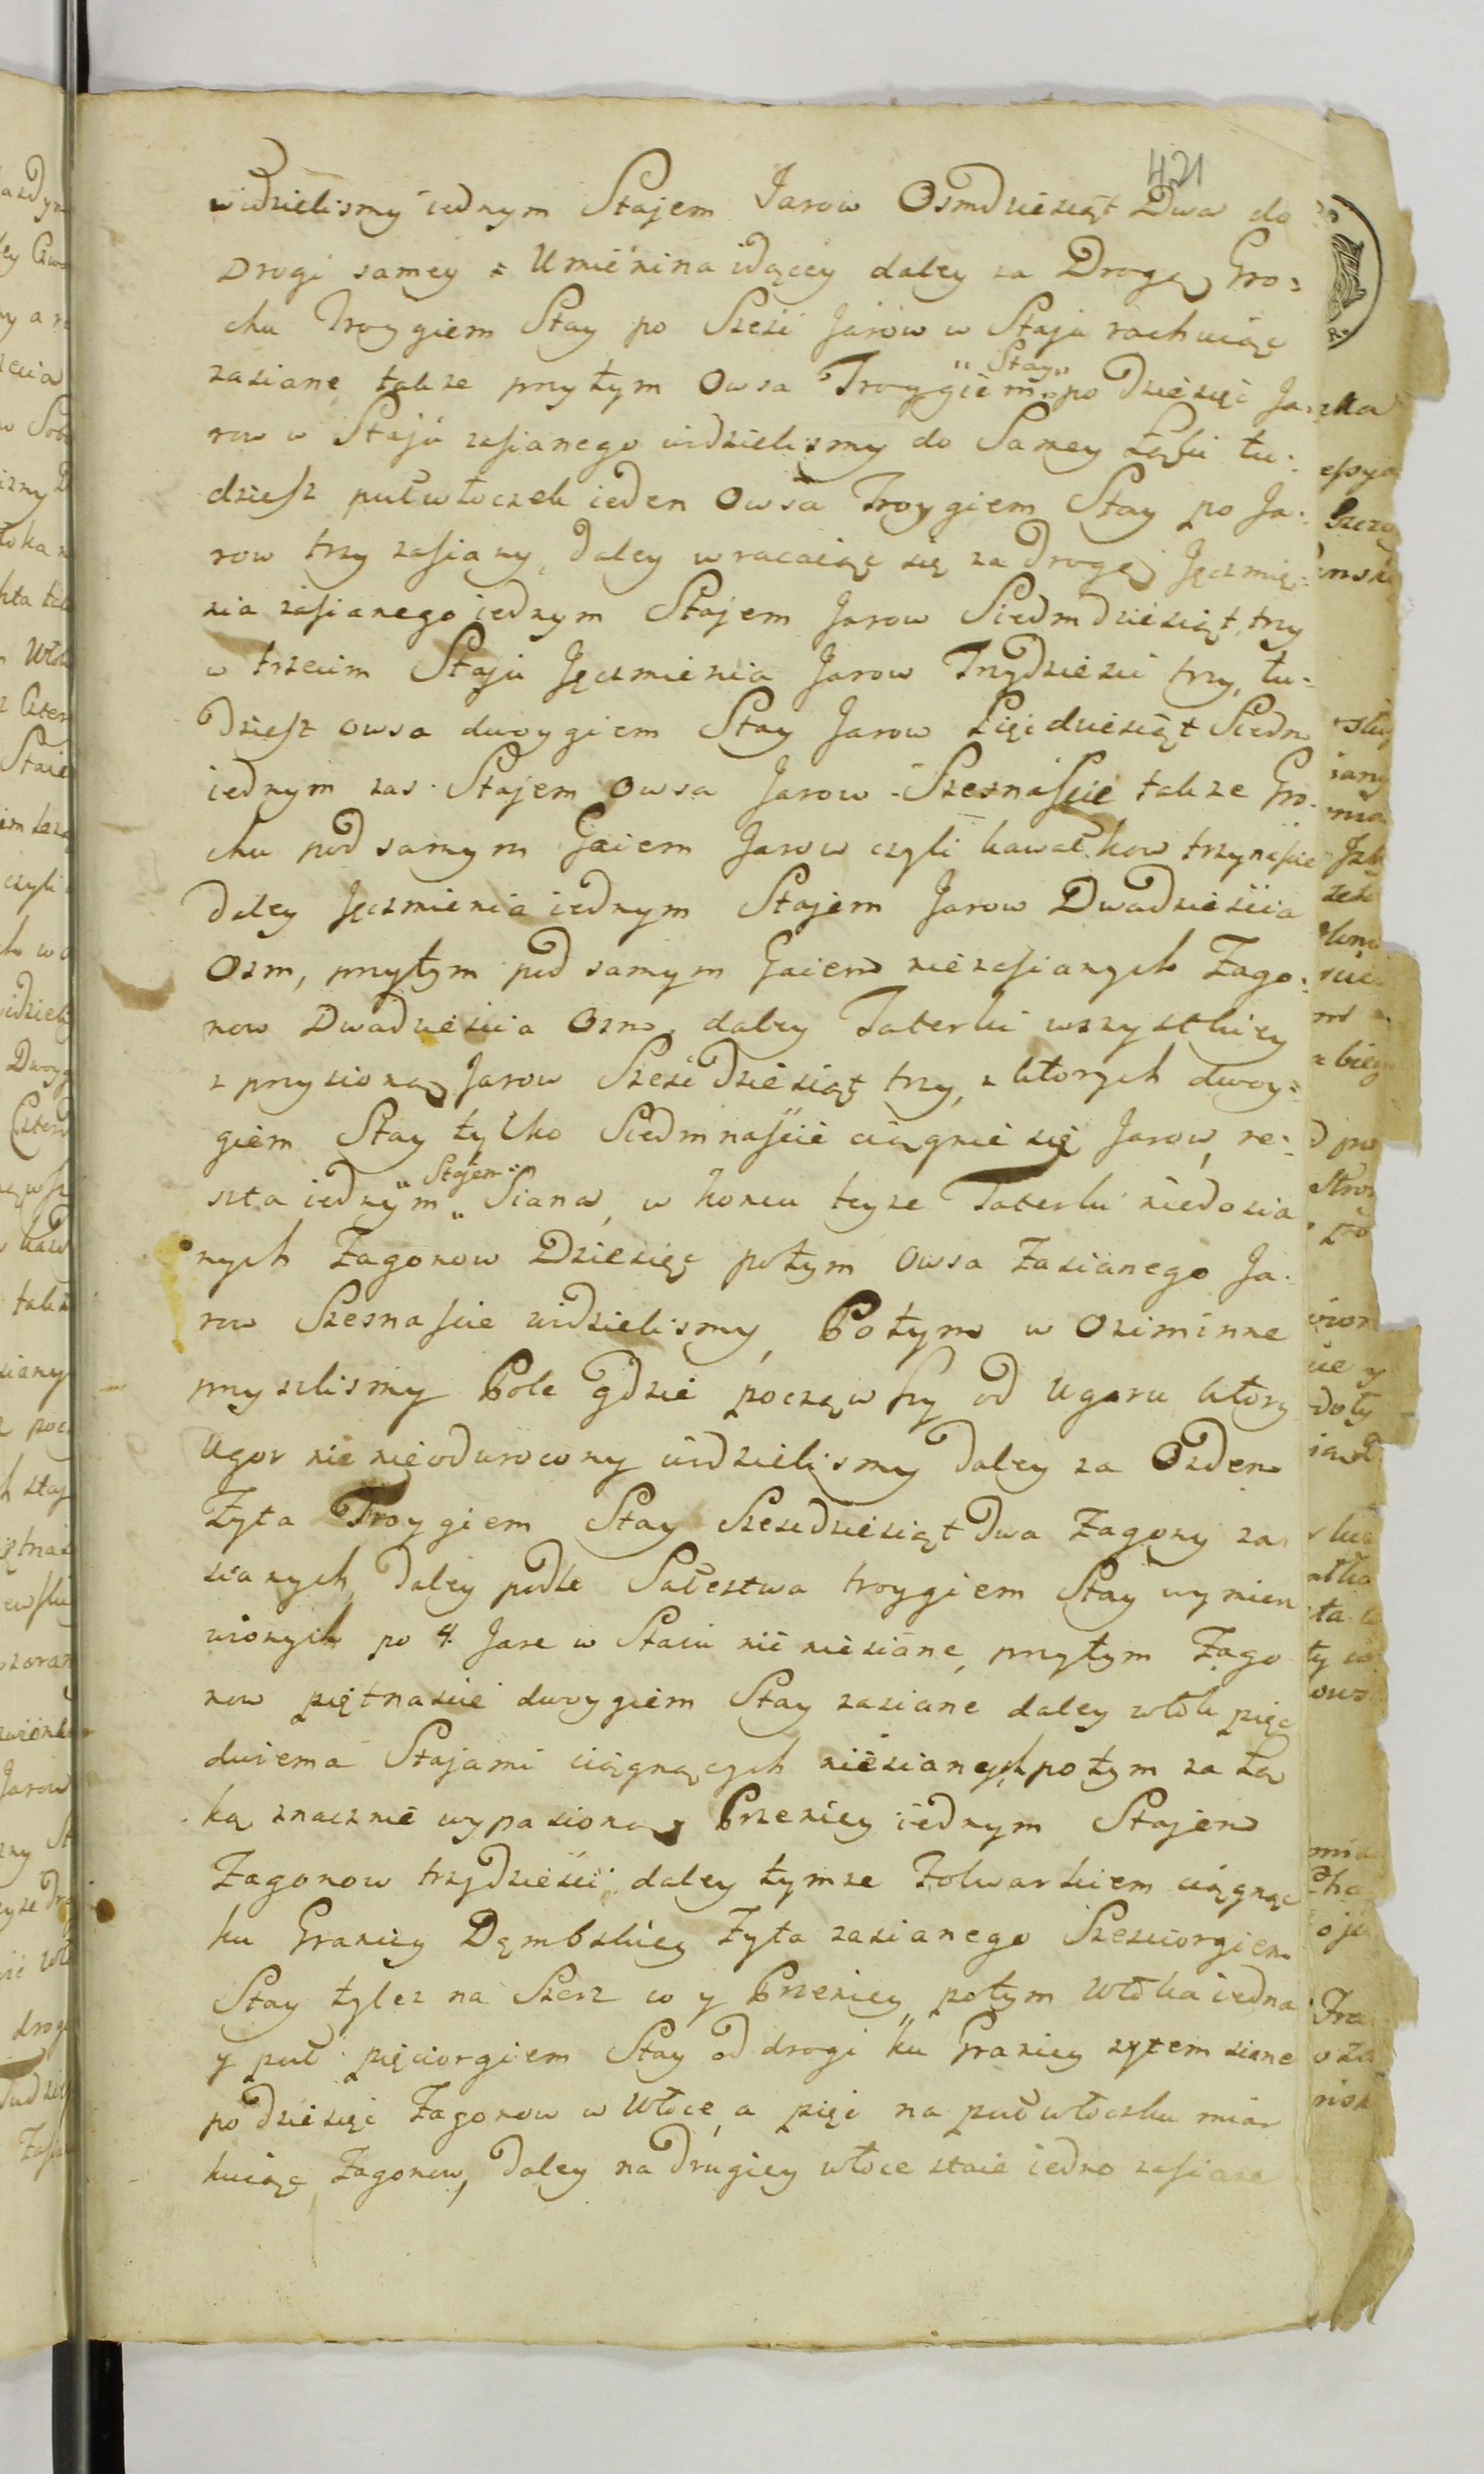 421
widzielismy iednym Stajem Jarow Osmdziesiąt Dwa do
Drogi samey z Umienina idącey daley za Drogą Gro=
chu Troygiem Stay po Sześć Jarow w Staju rachuiąc
zasiane, takze przytym Owsa Troygiem "Stay" po Dziesięć Ja=
row w Staju zasianego widzielismy do Samey Łąki tu=
dziesz pułwłoczek ieden Owsa Troygiem Stay po Ja=
row trzy zasiany, daley wracaiąc się za drogę Jęczmie=
nia zasianego iednym Stajem Jarow Siedmdziesiąt trzy
w trzecim Staju Jęczmienia Jarow Trzydziesci trzy, tu=
dziesz owsa dwoygiem Stay Jarow Pięćdziesiąt Siedm
iednym zas Stajem Owsa Jarow Szesnascie takze Gro=
chu pod samym Gaiem Jarow czyli kawałkow trzynascie
daley Jęczmienia iednym Stajem Jarow Dwadziescia
Osm, przytym pod samym Gaiem niezasianych Zago=
now Dwadziescia Osm, daley Taterki wszystkiey
z przysioną Jarow Sześćdziesiąt trzy, z ktorych dwoy=
giem Stay tylko Siedmnascie ciągnie się Jarow, re=
szta iednym "Stajem" Siana, w koncu teyze Taterki niedosia
nych Zagonow Dziesięć potym Owsa Zasianego Ja=
row Szesnascie widzielismy, Potym w Oziminne
przyszlismy Pole gdzie począwszy od Ugoru ktory
Ugor nie nieodwrocony widzielismy daley za Ozdem
Zyta Troygiem Stay Szescdziesiąt dwa Zagony za
sianych, daley podle Sałestwa troygiem Stay wymien
wionych po 4. Jare w Staiu nie niesiane, przytym Zago
now piętnascie dwoygiem Stay zasiane daley włok pięc
dwiema Stajami ciągnących niesianych potym za Łą
ką znacznie wypasioną Przenicy iednym Stajem
Zagonow trzydziesci, daley tymze Folwarkiem ciągnąc
ku Granicy Dąmbskiey Zyta zasianego Szesciorgiem
Stay tylez na Szerz co y Przenicy potym Włoka iedna
y puł pięciorgiem Stay od drogi ku Granicy zytem siane
po dziesięć Zagonow w Włoce, a pięć na pułwłoczku miar
kuiąc Zagonow, daley na drugiey włoce staie iedno zasiane